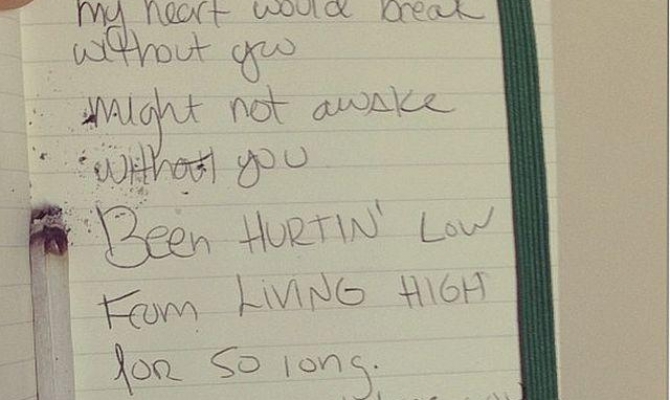 my heart would break
without you
might not awake
without you
Been HURTIN' LOW
From LIVING HIGH
for so long.